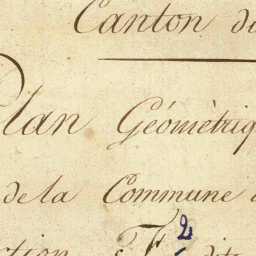 Canton d
Plan Géométriq
de la Commune
ction F 2 dit